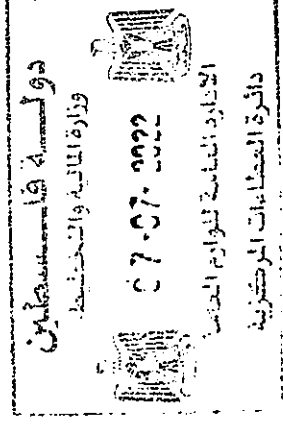 دولة فلسطين
وزارة المالية والتخطيط
07-07-2022
الادارة العامة للوازم العامة
دائرة العطاءات المركزية